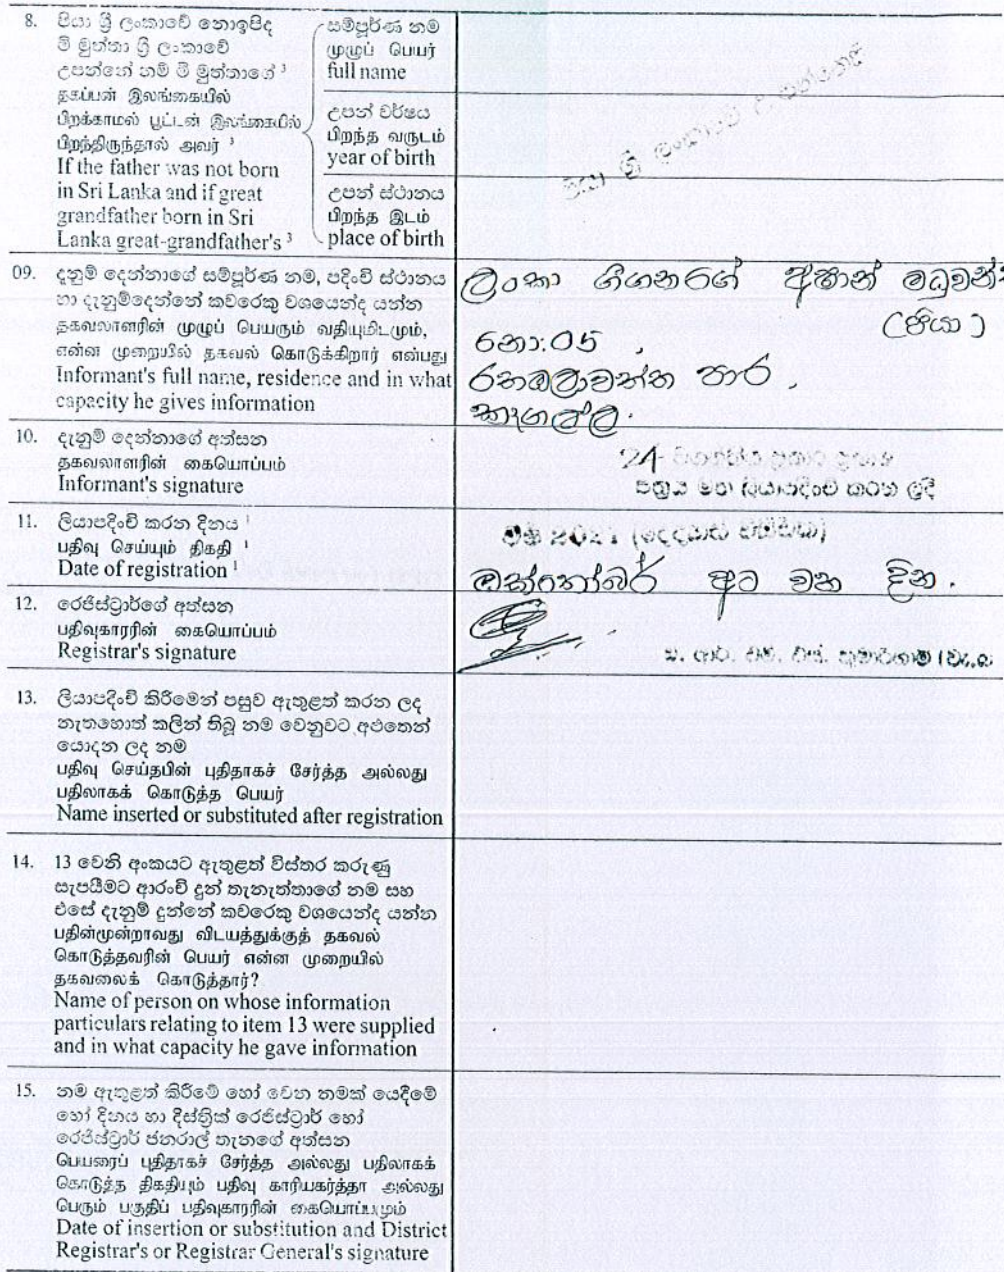 8. පියා ශ්‍රී ලංකාවේ නොඉපිද
මී මුත්තා ශ්‍රී ලංකාවේ
උපන්නේ නම් මී මුත්තාගේ ³
தகப்பன் இலங்கையில்
பிறக்காமல் பூட்டன் இலங்கையில்
பிறந்திருந்தால் அவர் ³
If the father was not born
in Sri Lanka and if great
grandfather born in Sri
Lanka great-grandfather's ³
සම්පූර්ණ නම
முழுப் பெயர்
full name
උපන් වර්ෂය
பிறந்த வருடம்
year of birth
උපන් ස්ථානය
பிறந்த இடம்
place of birth
පියා ශ්‍රී ලංකාවේ උපන්නෙකි
09. දැනුම් දෙන්නාගේ සම්පූර්ණ නම, පදිංචි ස්ථානය
හා දැනුම්දෙන්නේ කවරෙකු වශයෙන්ද යන්න
தகவலாளரின் முழுப் பெயரும் வதியுமிடமும்,
என்ன முறையில் தகவல் கொடுக்கிறார் என்பது
Informant's full name, residence and in what
capacity he gives information
ලංකා ගීගනගේ අෂාන් මධුවන්
(පියා)
නො:05,
රනඹලාවත්ත පාර.
කෑගල්ල.
10. දැනුම් දෙන්නාගේ අත්සන
தகவலாளரின் கையொப்பம்
Informant's signature
24 ප්‍රකාර ප්‍රකාශ
පත්‍රය මත ලියාපදිංචි කරන ලදි
11. ලියාපදිංචි කරන දිනය ¹
பதிவு செய்யும் திகதி ¹
Date of registration ¹
වර්ෂ 2021 (දෙදහස් විසිඑක)
ඔක්තෝබර් අට වන දින.
12. රෙජිස්ට්‍රාර්ගේ අත්සන
பதிவுகாரரின் கையொப்பம்
Registrar's signature
ඩී. ආර්. එම්. එස්. කුමාරිහාමි
13. ලියාපදිංචි කිරීමෙන් පසුව ඇතුළත් කරන ලද
නැතහොත් කලින් තිබූ නම වෙනුවට අළුතෙන්
යොදන ලද නම
பதிவு செய்தபின் புதிதாகச் சேர்த்த அல்லது
பதிலாகக் கொடுத்த பெயர்
Name inserted or substituted after registration
14. 13 වෙනි අංකයට ඇතුළත් විස්තර කරුණු
සැපයීමට ආරංචි දුන් තැනැත්තාගේ නම සහ
එසේ දැනුම් දුන්නේ කවරෙකු වශයෙන්ද යන්න
பதின்மூன்றாவது விடயத்துக்குத் தகவல்
கொடுத்தவரின் பெயர் என்ன முறையில்
தகவலைக் கொடுத்தார்?
Name of person on whose information
particulars relating to item 13 were supplied
and in what capacity he gave information
15. නම ඇතුළත් කිරීමේ හෝ වෙන නමක් යෙදීමේ
හෝ දිනය හා දිස්ත්‍රික් රෙජිස්ට්‍රාර් හෝ
රෙජිස්ට්‍රාර් ජනරාල් තැනගේ අත්සන
பெயரைப் புதிதாகச் சேர்த்த அல்லது பதிலாகக்
கொடுத்த திகதியும் பதிவு காரியகர்த்தா அல்லது
பெரும் பகுதிப் பதிவுகாரரின் கையொப்பமும்
Date of insertion or substitution and District
Registrar's or Registrar General's signature